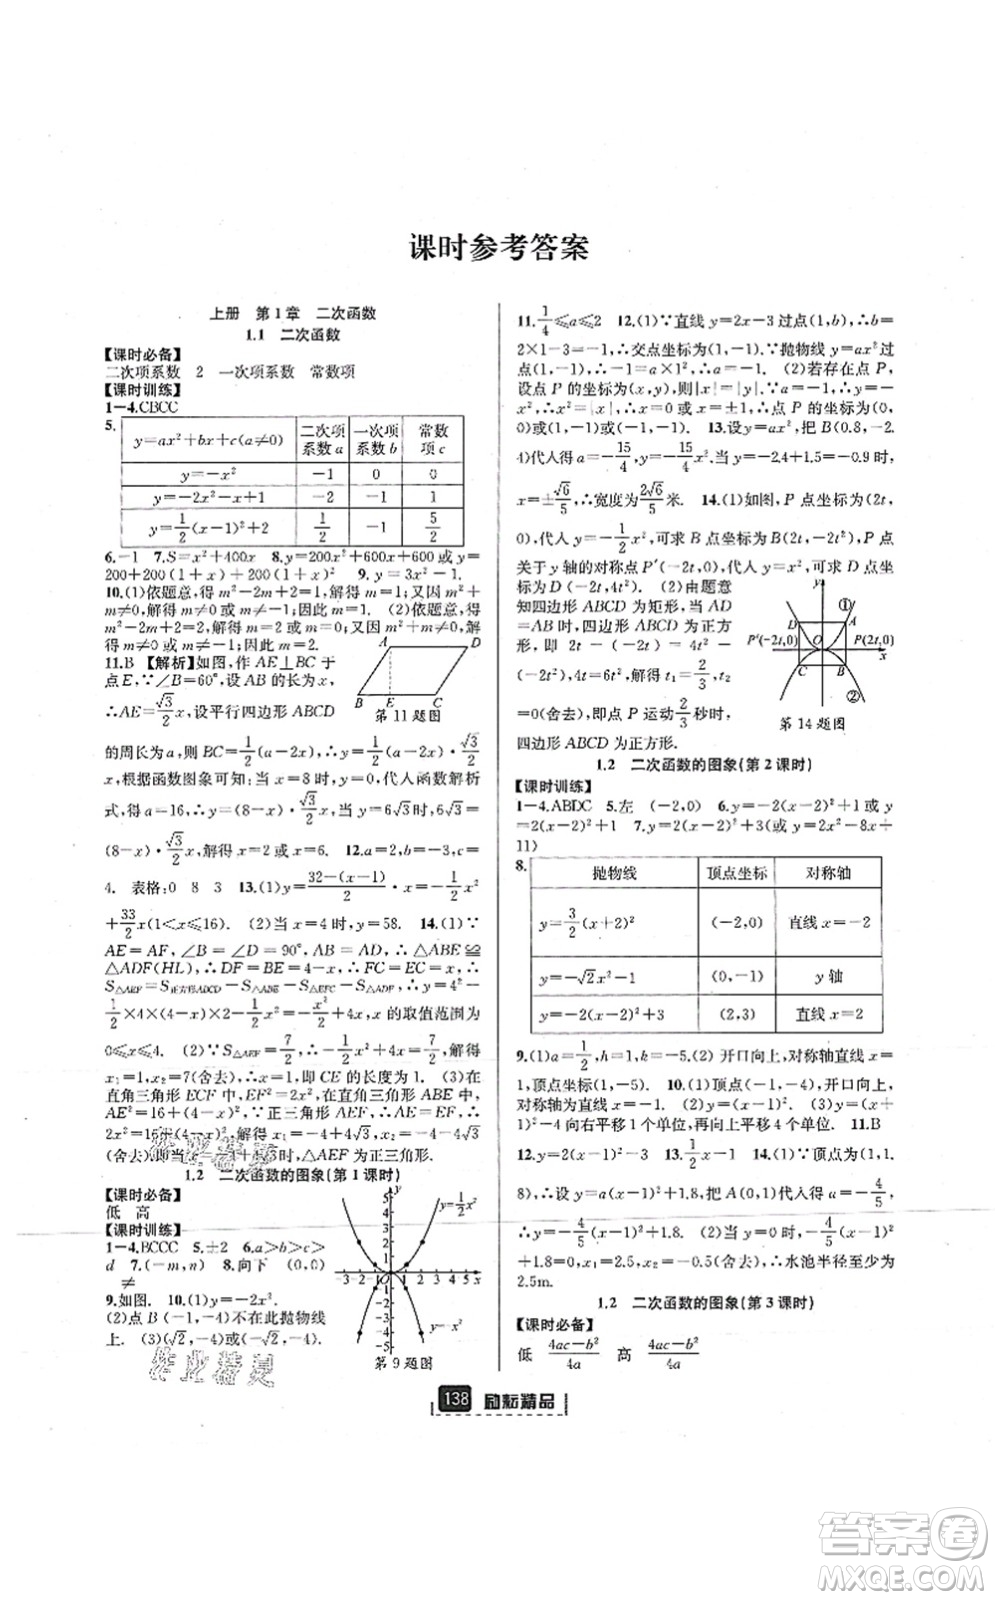 课时参考答案
上册 第1章 二次函数
1.1 二次函数
【课时必备】
二次项系数 2 一次项系数 常数项
【课时训练】
1—4.CBCC
5.
y=ax²+bx+c(a≠0) 二次项系数a 一次项系数b 常数项c
y=-x² -1 0 0
y=-2x²-x+1 -2 -1 1
y=1/2(x-1)²+2 1/2 -1 5/2
6.-1 7.S=x²+400x 8.y=200x²+600x+600或y=
200+200(1+x)+200(1+x)² 9. y=3x²-1.
10.(1)依题意,得m²-2m+2=2,解得m=2或m=0;又因
m²+m≠0,解得m≠0或m≠-1;因此m=2. (2)依题意,得
m²-2m+2=1,解得m=1;又因m²+m≠0,解得
m≠0或m≠-1;因此m=1. (3)依题意,得
m²-2m+2=2,解得m=2或m=0;又因
11.B 【解析】如图,作AE⊥BC于
点E,∵∠B=60°,设AB的长为x,
∴AE=√3/2x,设平行四边形ABCD
第11题图
的周长为a,则BC=1/2(a-2x),∴y=1/2(a-2x)·√3/2
x,根据函数图象可知:当x=8时,y=0,代入函数解析
式,得a=16,∴y=(8-x)·√3/2x,当y=6√3时,6√3=
(8-x)·√3/2x,解得x=2或x=6. 12.a=2,b=-3,c=
4. 表格:0 8 3 13.(1)y=32-(x-1)/2·x=-1/2x²
+33/2x(1<x≤16). (2)当x=4时,y=58. 14.(1)∵
AE=AF,∠B=∠D=90°,AB=AD,∴△ABE≌
△ADF(HL),∴DF=BE=4-x,∴FC=EC=x,∴
S△AEF=S正方形ABCD-S△ABE-S△EFC-S△ADF=4²-
1/2×4×(4-x)×2-1/2·x²=-x²/2+4x,x的取值范围为
0≤x≤4. (2)∵S△AEF=7/2,∴-x²/2+4x=7/2,∴
x₁=1,x₂=7(舍去),即CE的长度为1. (3)在
直角三角形ECF中,EF²=2x²,在直角三角形ABE中,
AE²=16+(4-x)²,∵正三角形AEF中,AE=EF,∴
2x²=16+(4-x)²,解得x₁=-4+4√3,x₂=-4-4√3
(舍去),即当x=-4+4√3时,△AEF为正三角形.
1.2 二次函数的图象(第1课时)
【课时必备】
低 高
【课时训练】
1—4.BCCC 5.±2 6.a>b>c>
d 7.(-m,n) 8.向下 (0,0)
≠
9.如图. 10.(1)y=-2x².
(2)点B(-1,-4)不在此抛物线
上. (3)(√2,-4)或(-√2,-4)
y=1/2x²
y=-x²
第9题图
11.1/4≤a≤2 12.(1)∵直线y=2x-3过点(1,b),∴b=
2×1-3=-1,∴交点坐标为(1,-1)∵抛物线y=ax²过
点(1,-1),∴-1=a×1²,∴a=-1. (2)若存在点P,
设点P的坐标为(x,y),则|x|=|y|,∵a=-1,∴y=
-x²,∴|x|=|-x²|,∴x=0或x=±1,∴点P的坐标为(0,
0)或(1,-1)或(-1,-1). 13.设y=ax²,把B(0.8,-2.
4)代入得a=-15/4,∴y=-15/4x²,当y=-1.5+(-0.9)时,
x=±√6/5,∴宽度为2√6/5米. 14.(1)如图,P点坐标为(2t,
0),代入y=-1/2x²,∴y=-2t²,∴B(2t,-2t²),∵P点
关于y轴的对称点P′(-2t,0),代入y=x²,∴y=4t²,∴点
坐标为D(-2t,4t²). (2)由题意
知四边形ABCD为矩形,当AD
=AB时,四边形ABCD为正方
形,即2t-(-2t)=4t²-
(-2t²),解得t₁=2/3,t₂
=0(舍去),即点P运动2/3秒时,
四边形ABCD为正方形.
P′(-2t,0) P(2t,0)
第14题图
1.2 二次函数的图象(第2课时)
【课时训练】
1—4.ABDC 5.左 (-2,0) 6.y=-2(x-2)²+1或y
=2(x-2)²+1 7.y=2(x-2)²+3(或y=2x²-8x+
11)
8.
抛物线 顶点坐标 对称轴
y=3/2(x+2)² (-2,0) 直线x=-2
y=-√2x²-1 (0,-1) y轴
y=-2(x-2)²+3 (2,3) 直线x=2
9.(1)a=1/2,h=1,k=-5.(2)开口向上,对称轴直线x=
1,顶点坐标为(1,-5). 10.(1)顶点(-1,-4),开口向上,
对称轴为直线x=-1. (2)y=(x-1)². (3)将C₂
向右平移1个单位,再向上平移4个单位. 11.B
12.y=2(x-1)²-2 13.1/2 14.(1)∵顶点为(1,1.
8),∴设y=a(x-1)²+1.8,把A(0,1)代入得a=-4/5,
∴y=-4/5(x-1)²+1.8. (2)当y=0时,-4/5(x-1)²
+1.8=0,x₁=2.5,x₂=-0.5(舍去),∴水池半径至少为
2.5m.
1.2 二次函数的图象(第3课时)
【课时必备】
低 4ac-b²/4a 高 4ac-b²/4a
138 励耘精品
作业精灵
答案卷
MXQE.COM